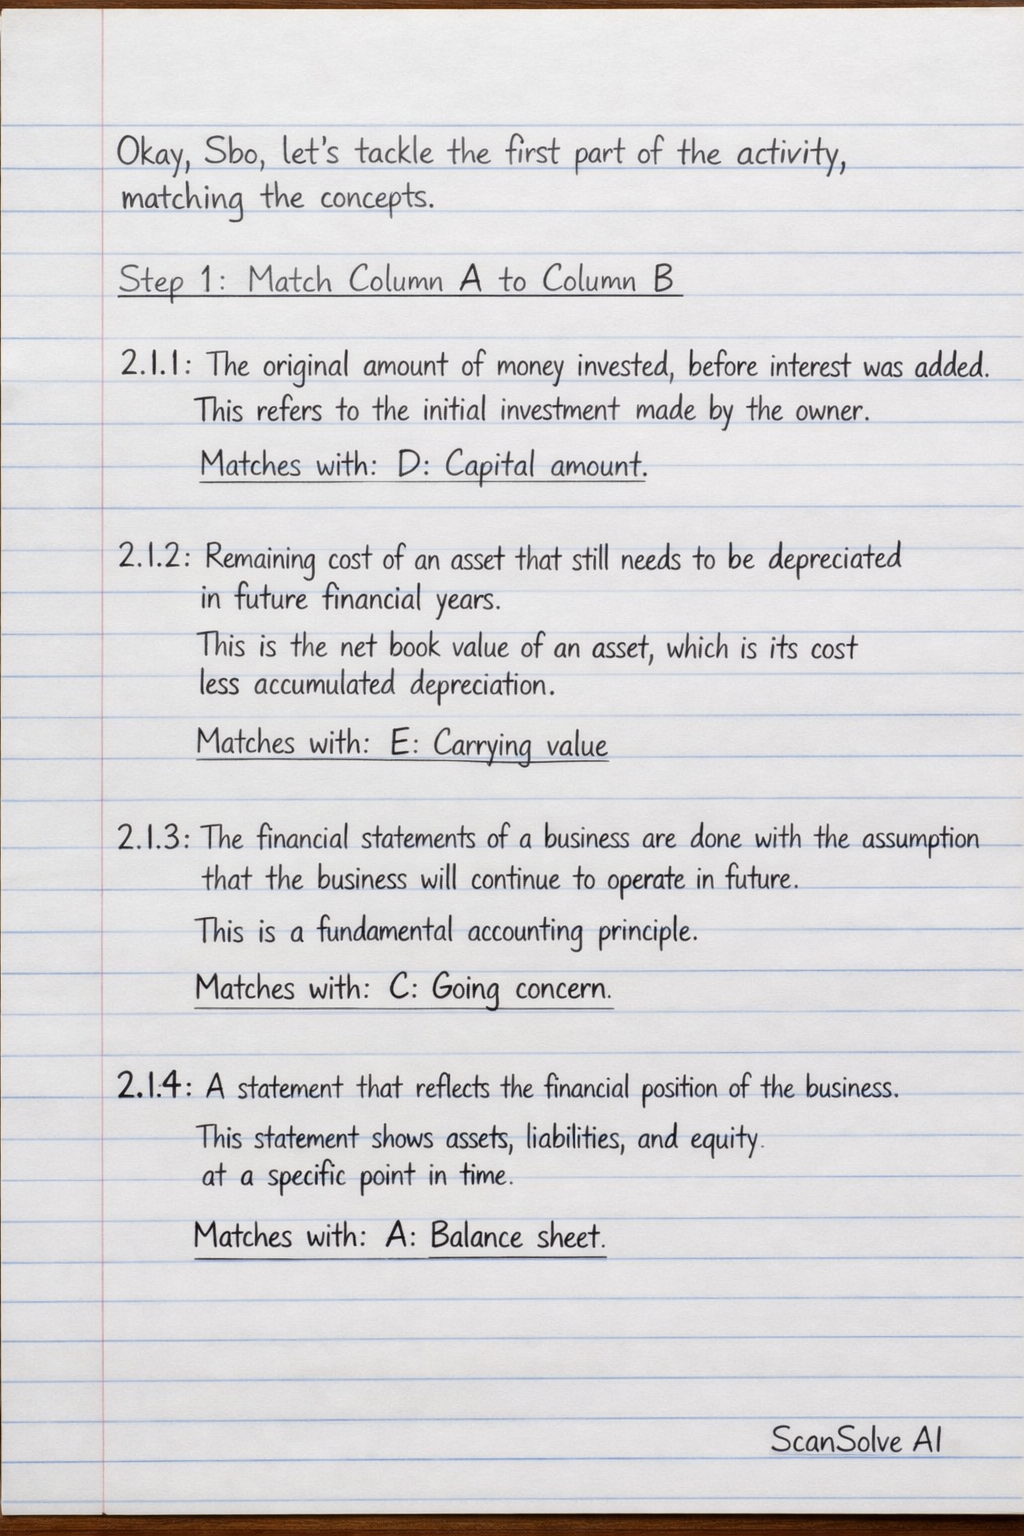 Okay, Sbo, let's tackle the first part of the activity,
matching the concepts.
Step 1: Match Column A to Column B
2.1.1: The original amount of money invested, before interest was added.
This refers to the initial investment made by the owner.
Matches with: D: Capital amount.
2.1.2: Remaining cost of an asset that still needs to be depreciated
in future financial years.
This is the net book value of an asset, which is its cost
less accumulated depreciation.
Matches with: E: Carrying value
2.1.3: The financial statements of a business are done with the assumption
that the business will continue to operate in future.
This is a fundamental accounting principle.
Matches with: C: Going concern.
2.1.4: A statement that reflects the financial position of the business.
This statement shows assets, liabilities, and equity.
at a specific point in time.
Matches with: A: Balance sheet.
ScanSolve AI